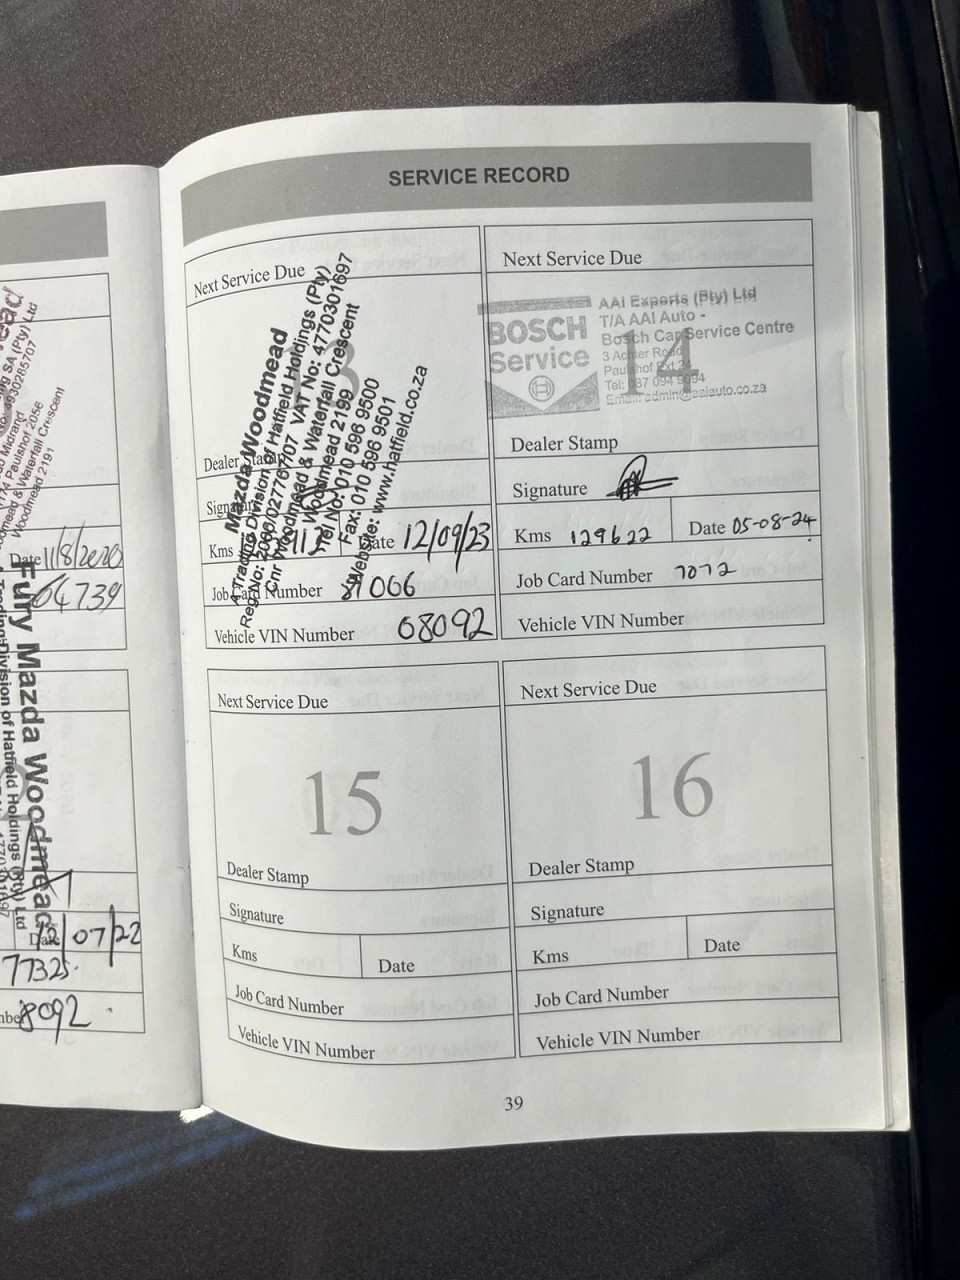 SERVICE RECORD
Next Service Due
13
Mazda Woodmead
A Trading Division of Hatfield Holdings (Pty)
Reg No: 2006/027767/07 VAT No: 4770301697
Cnr Woodmead & Waterfall Crescent
Woodmead 2199
Tel No: 010 596 9500
Fax: 010 596 9501
Website: www.hatfield.co.za
Dealer Stamp
Signature
Kms
Date 12/09/23
Job Card Number 81066
Vehicle VIN Number 08092
Next Service Due
14
BOSCH
Service
AAi Experts (Pty) Ltd
T/A AAI Auto -
Bosch Car Service Centre
3 Achter Road
Paulshof Ext 24
Tel: 087 094 9094
Email: admin@aaiauto.co.za
Dealer Stamp
Signature
Kms 129622 Date 05-08-24
Job Card Number 7072
Vehicle VIN Number
Next Service Due
15
Dealer Stamp
Signature
Kms Date
Job Card Number
Vehicle VIN Number
Next Service Due
16
Dealer Stamp
Signature
Kms Date
Job Card Number
Vehicle VIN Number
39
SA (Pty) Ltd
4930285707
Midrand
Paulshof 2056
& Waterfall Crescent
Woodmead 2191
Date 11/8/2020
64739
Fury Mazda Woodmead
Trading Division of Hatfield Holdings (Pty) Ltd
Date 12/07/22
77325.
8092